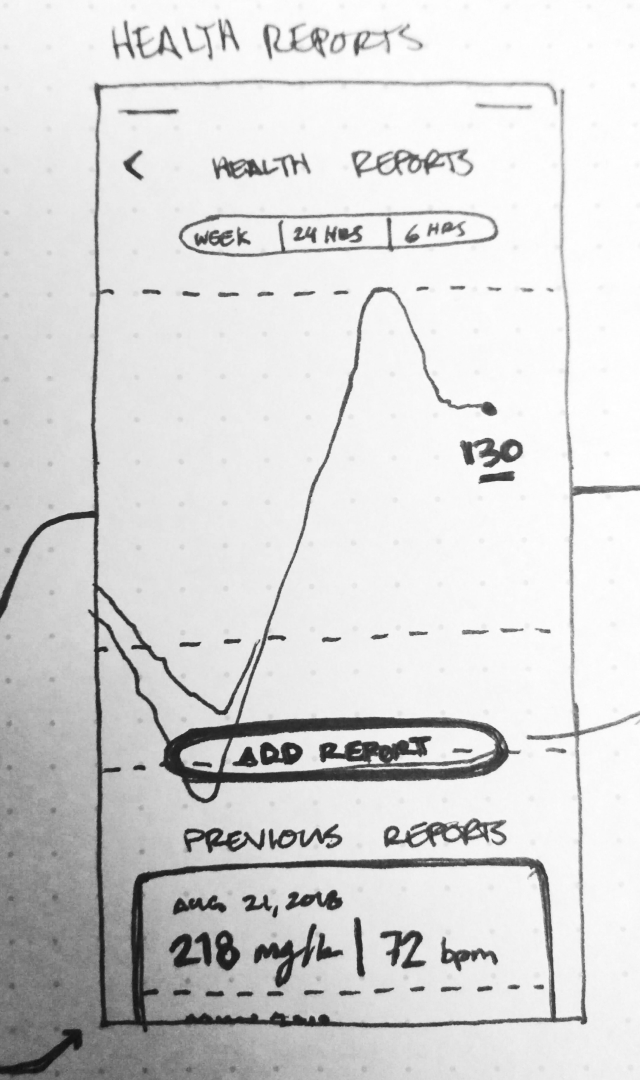 HEALTH REPORTS
< HEALTH REPORTS
WEEK | 24 HRS | 6 HRS
130
ADD REPORT
PREVIOUS REPORTS
AUG 21, 2018
218 | 72 bpm